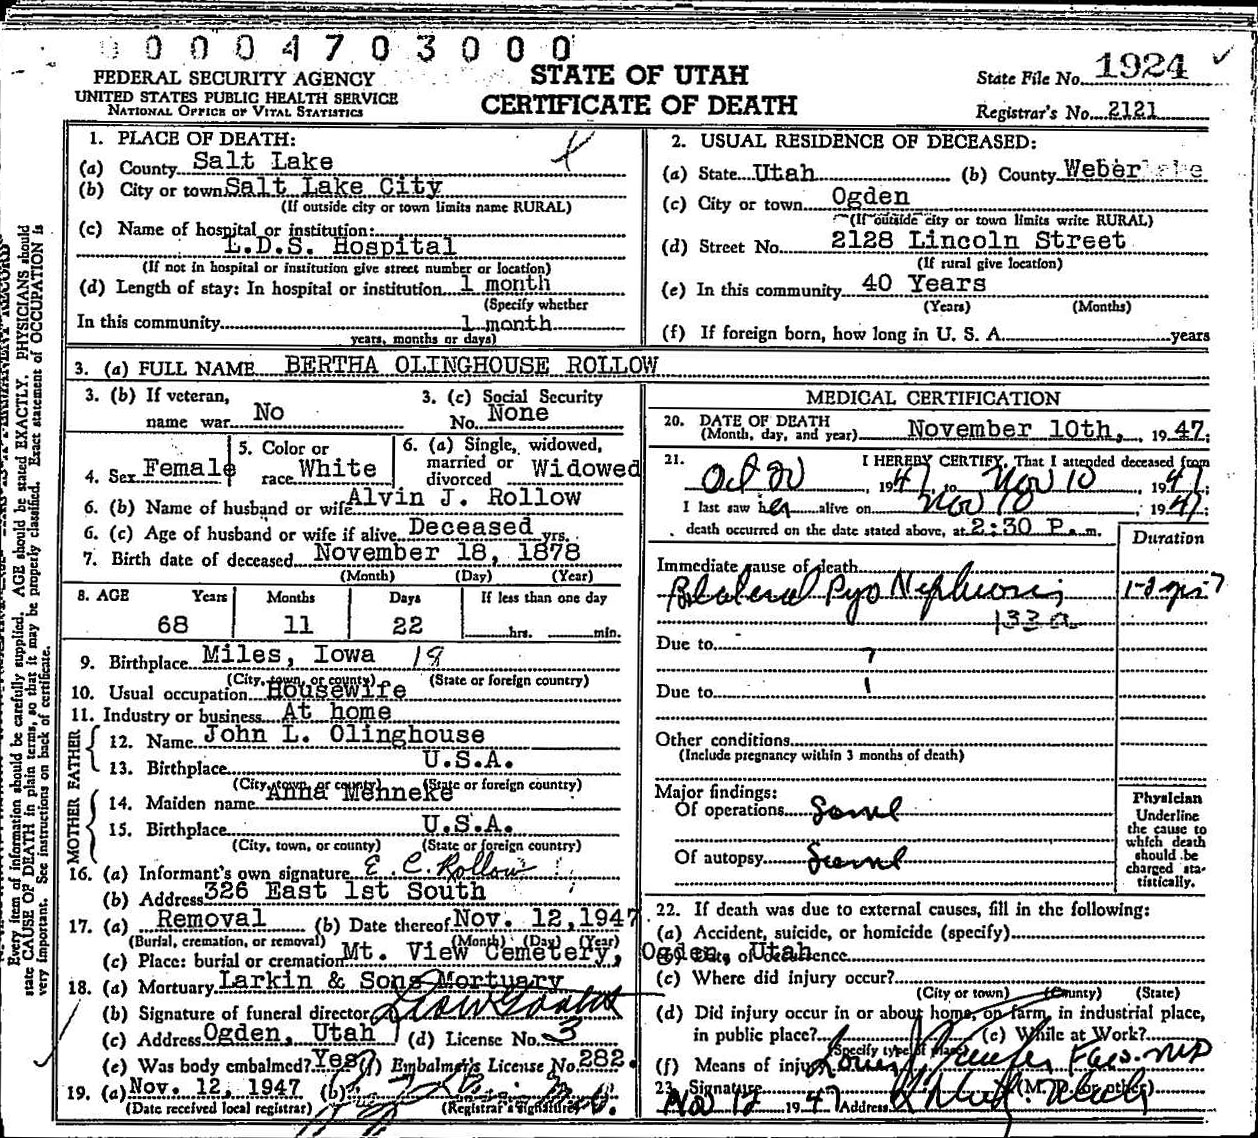 0 0 0 0 4 7 0 3 0 0 0
FEDERAL SECURITY AGENCY
UNITED STATES PUBLIC HEALTH SERVICE
NATIONAL OFFICE OF VITAL STATISTICS
STATE OF UTAH
CERTIFICATE OF DEATH
State File No. 1924
Registrar's No. 2121
Every item of information should be carefully supplied. AGE should be stated EXACTLY. PHYSICIANS should
state CAUSE OF DEATH in plain terms, so that it may be properly classified. Exact statement of OCCUPATION is
very important. See instructions on back of certificate.
1. PLACE OF DEATH:
(a) County Salt Lake
(b) City or town Salt Lake City
(If outside city or town limits name RURAL)
(c) Name of hospital or institution:
L.D.S. Hospital
(If not in hospital or institution give street number or location)
(d) Length of stay: In hospital or institution 1 month
(Specify whether
In this community 1 month
years, months or days)
2. USUAL RESIDENCE OF DECEASED:
(a) State Utah (b) County Weber
(c) City or town Ogden
(If outside city or town limits write RURAL)
(d) Street No. 2128 Lincoln Street
(If rural give location)
(e) In this community 40 Years
(Years) (Months)
(f) If foreign born, how long in U. S. A. years
3. (a) FULL NAME BERTHA OLINGHOUSE ROLLOW
3. (b) If veteran,
name war No
3. (c) Social Security
No. None
4. Sex Female
5. Color or
race White
6. (a) Single, widowed,
married or
divorced Widowed
6. (b) Name of husband or wife Alvin J. Rollow
6. (c) Age of husband or wife if alive Deceased yrs.
7. Birth date of deceased November 18, 1878
(Month) (Day) (Year)
8. AGE Years Months Days If less than one day
68 11 22 hrs. min.
9. Birthplace Miles, Iowa 18
(City, town, or county) (State or foreign country)
10. Usual occupation Housewife
11. Industry or business At home
FATHER
12. Name John L. Olinghouse
13. Birthplace U.S.A.
(City, town, or county) (State or foreign country)
MOTHER
14. Maiden name Anna Mehneke
15. Birthplace U.S.A.
(City, town, or county) (State or foreign country)
16. (a) Informant's own signature E C. Rollow
(b) Address 326 East 1st South
17. (a) Removal (b) Date thereof Nov. 12, 1947
(Burial, cremation, or removal) (Month) (Day) (Year)
(c) Place: burial or cremation Mt. View Cemetery, Ogden, Utah
18. (a) Mortuary Larkin & Sons Mortuary
(b) Signature of funeral director
(c) Address Ogden, Utah (d) License No. 3
(e) Was body embalmed? Yes (f) Embalmer's License No. 282.
19. (a) Nov. 12, 1947 (b)
(Date received local registrar) (Registrar's signature)
MEDICAL CERTIFICATION
20. DATE OF DEATH
(Month, day, and year) November 10th, 1947:
21. I HEREBY CERTIFY, That I attended deceased from
Oct 20, 1947, to Nov 10, 1947:
I last saw her alive on Nov 10, 1947:
death occurred on the date stated above, at 2:30 P. m.
Duration
Immediate cause of death
Bilateral Pyo Nephrosis 1-2 yrs ?
133a
Due to ?
Due to
Other conditions
(Include pregnancy within 3 months of death)
Major findings:
Of operations
Of autopsy
Physician
Underline
the cause to
which death
should be
charged sta-
tistically.
22. If death was due to external causes, fill in the following:
(a) Accident, suicide, or homicide (specify)
(b) Date of occurrence
(c) Where did injury occur?
(City or town) (County) (State)
(d) Did injury occur in or about home, on farm, in industrial place,
in public place? (e) While at Work?
(Specify type of place)
(f) Means of injury
23. Signature (M. D. or other)
Nov 12 1947 Address